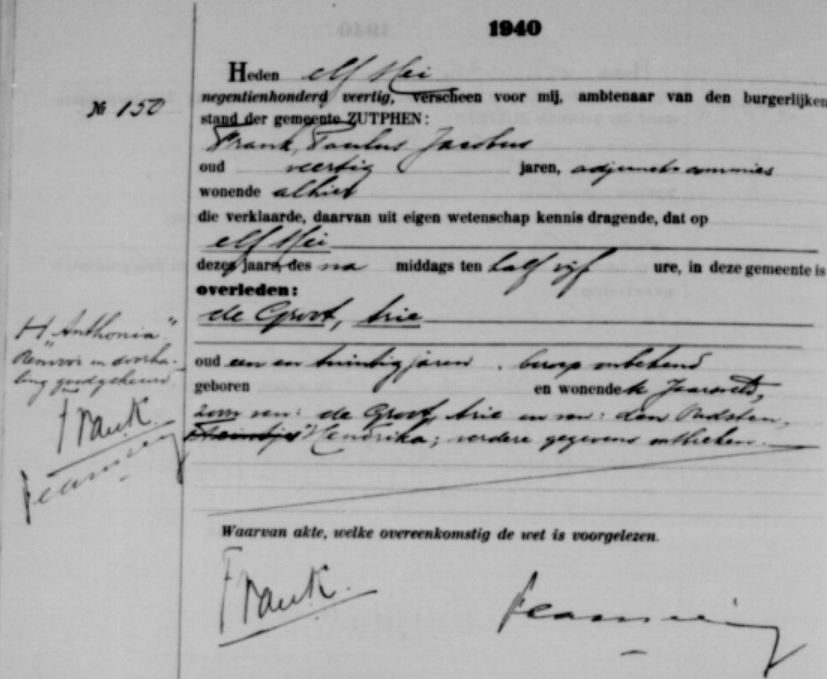 1940
Heden elf Mei
negentienhonderd veertig, verscheen voor mij, ambtenaar van den burgerlijken
№ 150
stand der gemeente ZUTPHEN:
Frank, Paulus Jacobus
oud veertig jaren, adjunct commies
wonende alhier
die verklaarde, daarvan uit eigen wetenschap kennis dragende, dat op
elf Mei
dezes jaars, des na middags ten half vijf ure, in deze gemeente is
overleden:
de Groot, Arie
oud een en twintig jaren, beroep onbekend
geboren en wonende te Jaarsveld,
zoon van: de Groot, Arie en van: den Oudsten,
Hendrika; verdere gegevens ontbreken.
H "Anthonia".
Renvooi en doorha-
ling goedgekeurd,
Frank
Waarvan akte, welke overeenkomstig de wet is voorgelezen.
Frank